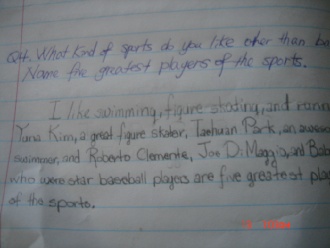 Q4. What kind of sports do you like other than
Name the greatest players of the sports.
I like swimming, figure skating, and
Yuna Kim, a great figure skater, Taehwan Park, an
swimmer, and Roberto Clemente, Joe DiMaggio, and
who were star baseball players are five greatest
of the sports.